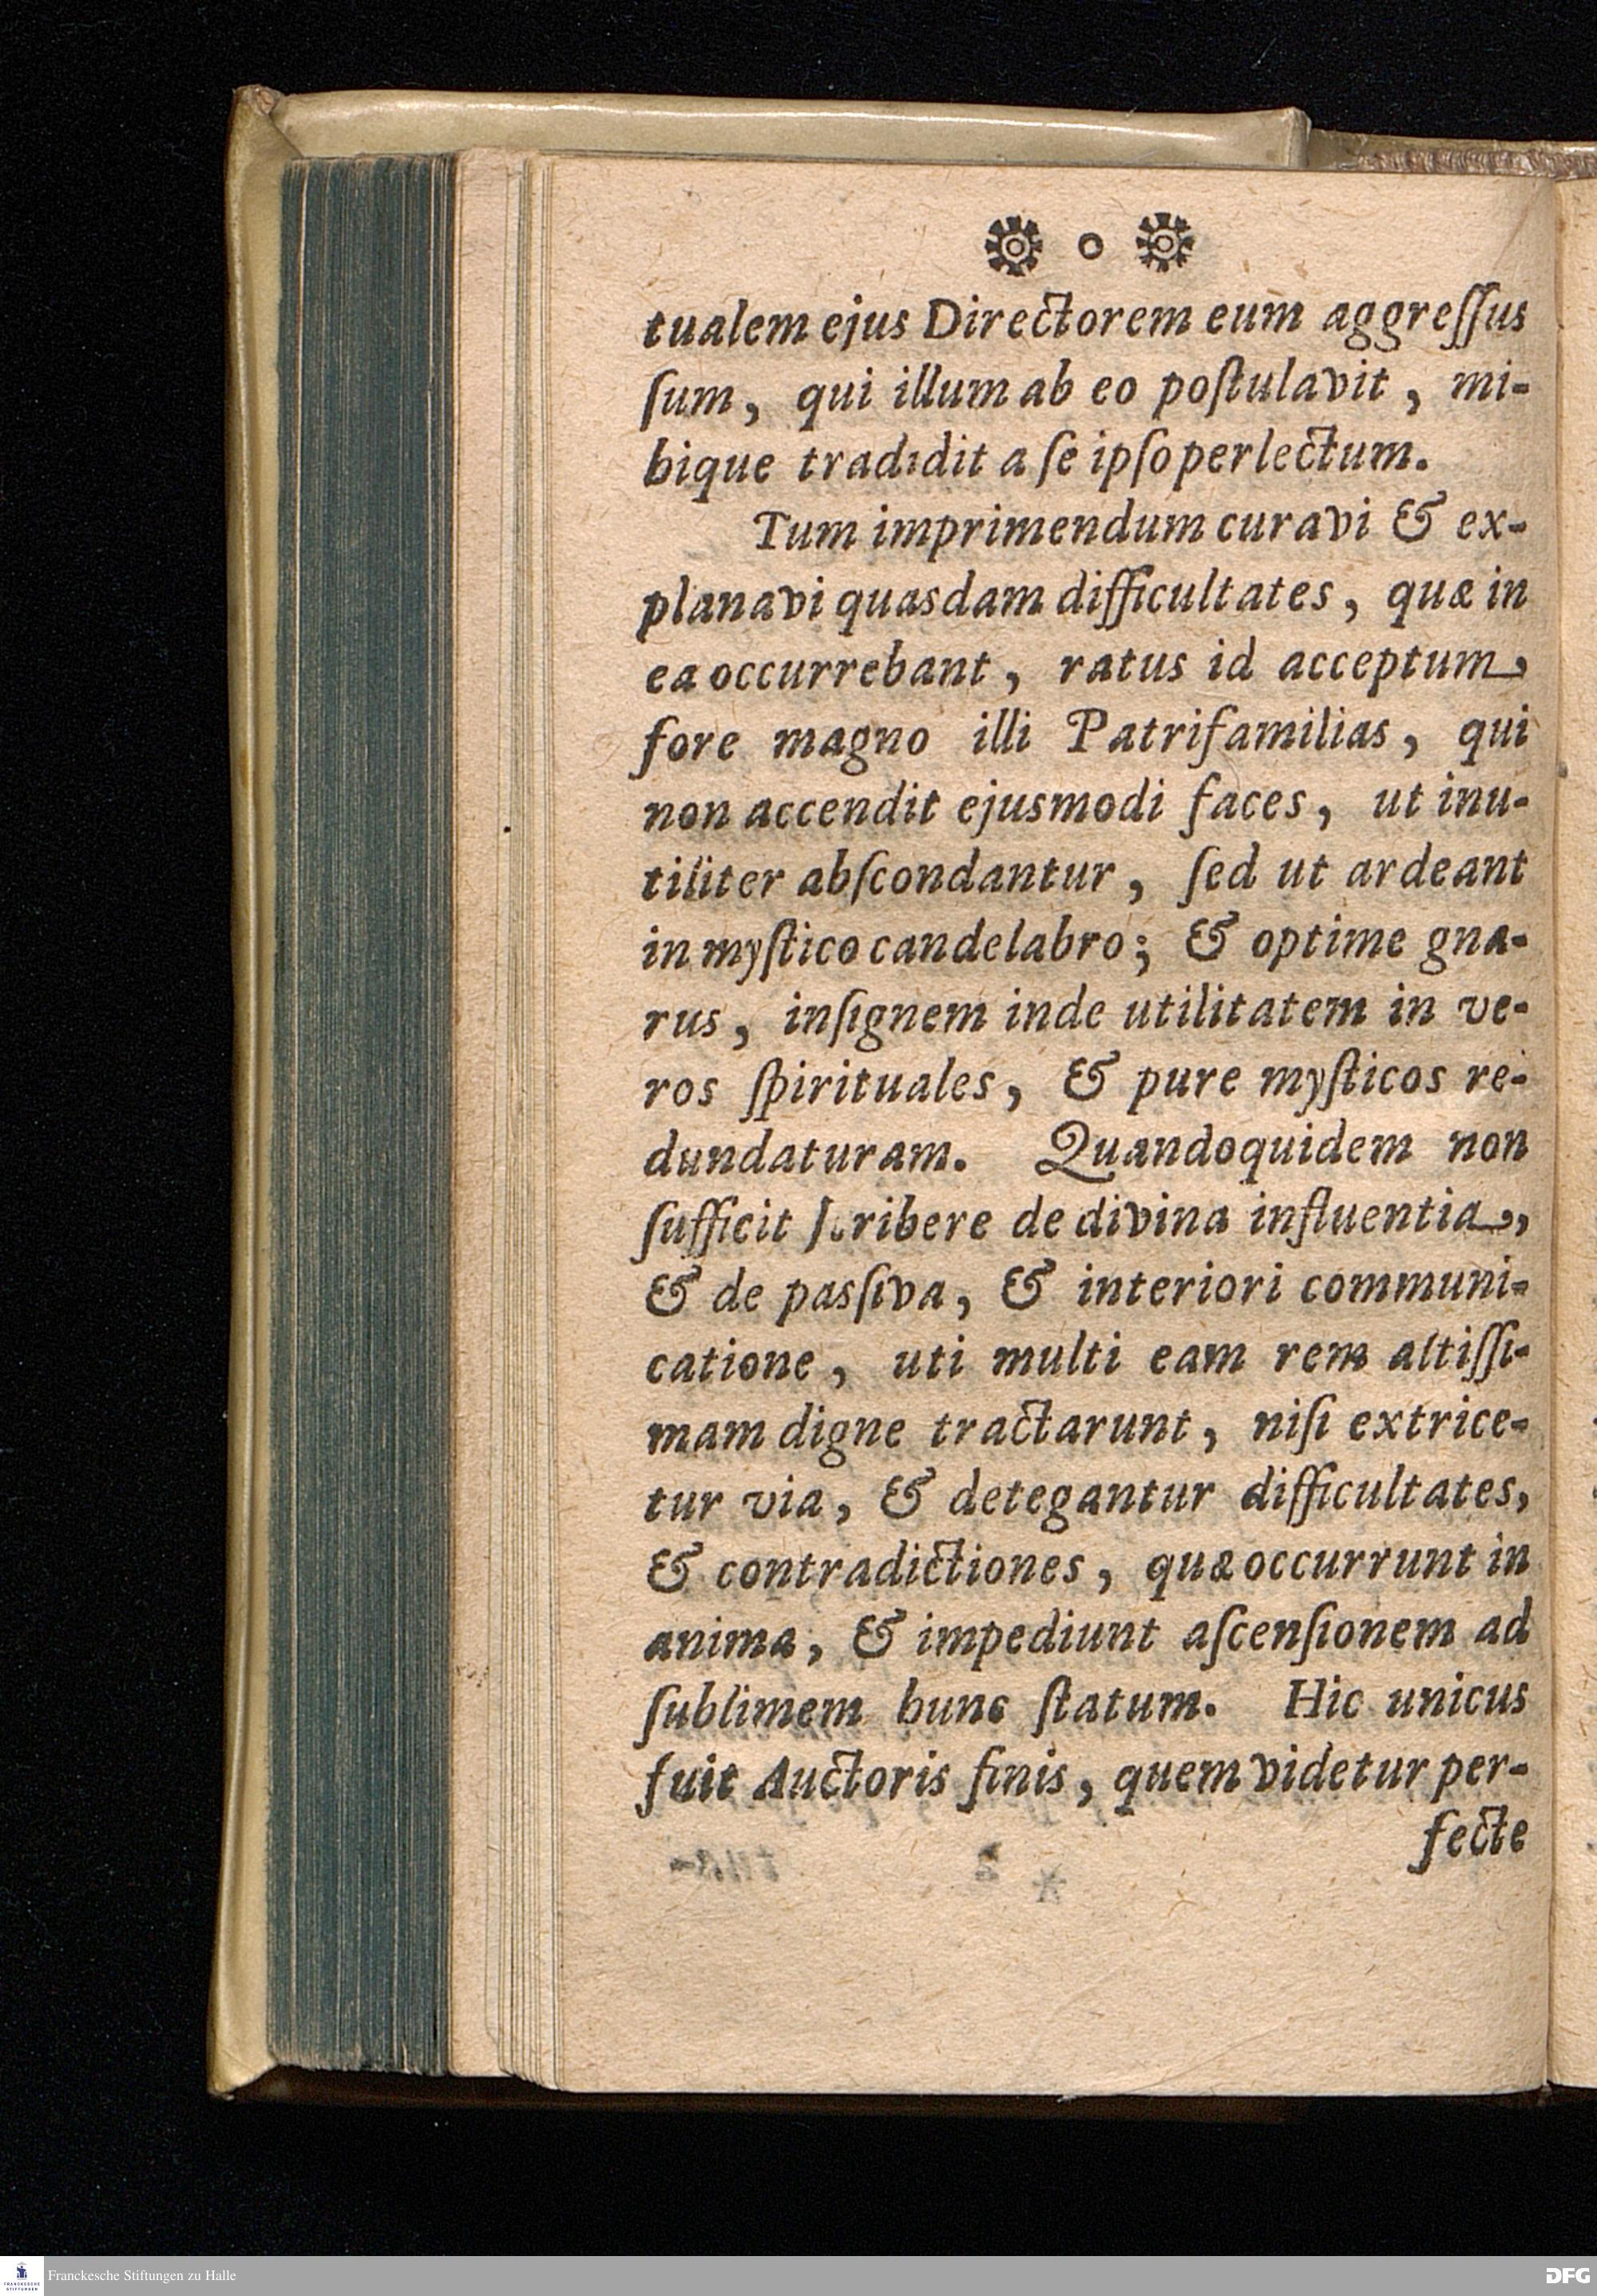 tualem ejus Directorem eum aggreſſus
ſum, qui illum ab eo poſtulavit, mi-
hique tradidit a ſe ipſo perlectum.
Tum imprimendum curavi & ex-
planavi quasdam difficultates, quæ in
ea occurrebant, ratus id acceptum
fore magno illi Patrifamilias, qui
non accendit ejusmodi faces, ut inu-
tiliter abſcondantur, ſed ut ardeant
in myſtico candelabro; & optime gna-
rus, inſignem inde utilitatem in ve-
ros ſpirituales, & pure myſticos re-
dundaturam. Quandoquidem non
ſufficit ſcribere de divina influentia,
& de pasſiva, & interiori communi-
catione, uti multi eam rem altiſſi-
mam digne tractarunt, niſi extrice-
tur via, & detegantur difficultates,
& contradictiones, quæ occurrunt in
anima, & impediunt aſcenſionem ad
ſublimem hunc ſtatum. Hic unicus
fuit Auctoris finis, quem videtur per-
fecte
FRANCKESCHE STIFTUNGEN
Franckesche Stiftungen zu Halle
DFG